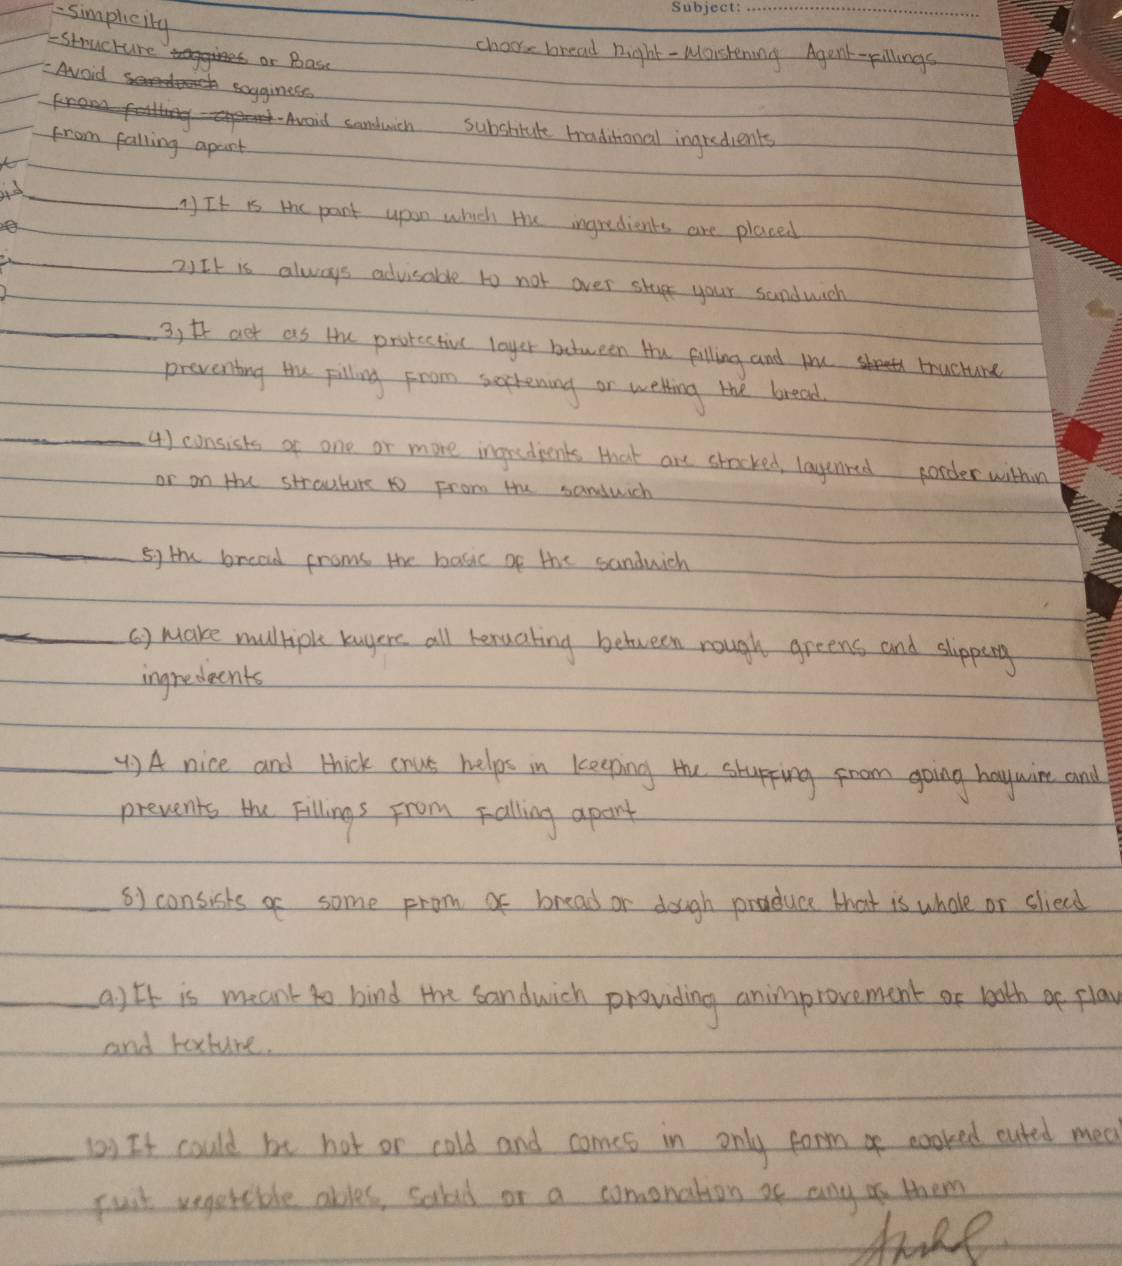 Subject:
-Simplicity
-Structure soggines or Base
choose bread Right - Moistening Agent - Fillings
-Avoid sandwich sogginess
from falling apart - Avoid sandwich
from falling apart
Substitute traditional ingredients
1) It is the part upon which the ingredients are placed
2) It is always advisable to not over stuff your sandwich
3) It act as the protective layer between the filling and the tructure
preventing the Filling From softening or wetting the bread.
4) consists of one or more ingredients that are stacked, layenred forder within
or on the strauture to From the sandwich
5) the bread froms the basic of the sandwich
6) Make multiple kuyere all teruating between rough greens and slippery
ingredeents
4) A nice and thick crus helps in keeping the stuffing From going haywire and
prevents the Fillings From Falling apart
8) consists of some From of bread or dough produce that is whole or slied
a) It is meant to bind the sandwich providing animprovement of both of flav
and texture.
10) It could be hot or cold and comes in only form of cooked cuted mea
fuit vegeteble ables, salad or a comonation of any of them